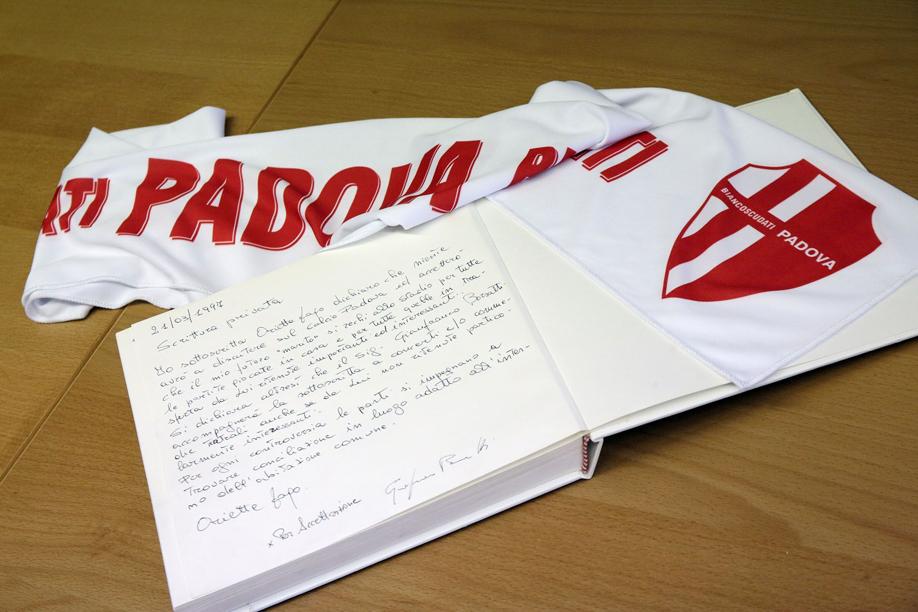 ATI PADOVA BI
ATI
BIANCOSCUDATI PADOVA
21/03/1997
Scrittura privata
Io sottoscritta Oriette fapo dichiaro che niente
avrò a discutere sul Calcio Padova ed accetterò
che il mio futuro "marito" si rechi allo stadio per tutte
le partite giocate in casa e per tutte quelle in tra-
sferta da lui ritenute importanti ed interessanti.
Si dichiara altresì che il Sig. Gianfranco
accompagnerà la sottoscritta a concerti e/o comme-
die teatrali anche se da lui non ritenute partico-
larmente interessanti.
Per ogni controversia le parti si impegnano a
trovare conciliazione in luogo adatto all'inter-
no dell'abitazione comune.
Oriette fapo
x Per Accettazione